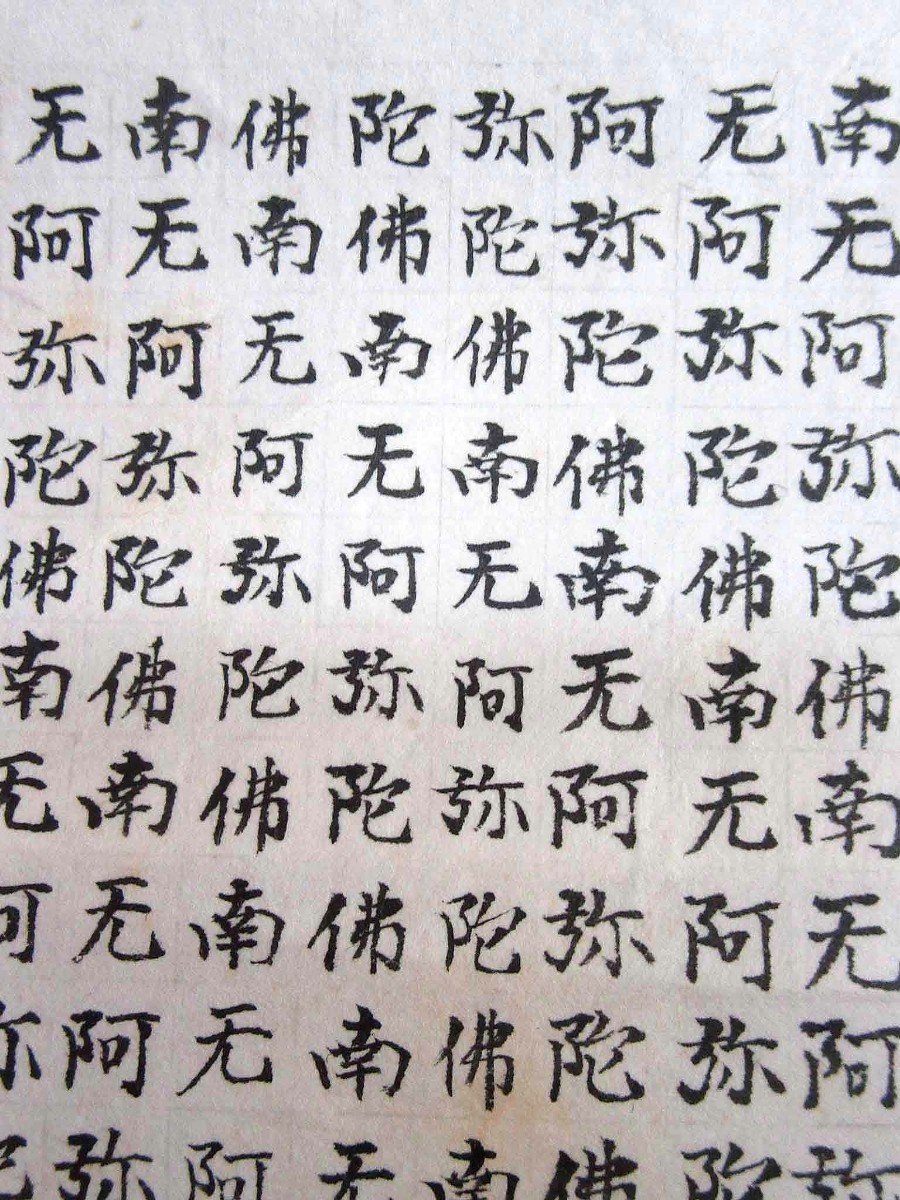 南无阿弥陀佛南无阿弥
无阿弥陀佛南无阿弥陀
阿弥陀佛南无阿弥陀佛
弥陀佛南无阿弥陀佛南
陀佛南无阿弥陀佛南无
佛南无阿弥陀佛南无阿
南无阿弥陀佛南无阿弥
无阿弥陀佛南无阿弥陀